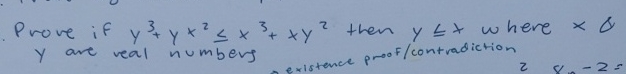 Prove if y³ + yx² ≤ x³ + xy² then y ≤ x where x &
y are real numbers
existence proof/contradiction
2 - 2 =